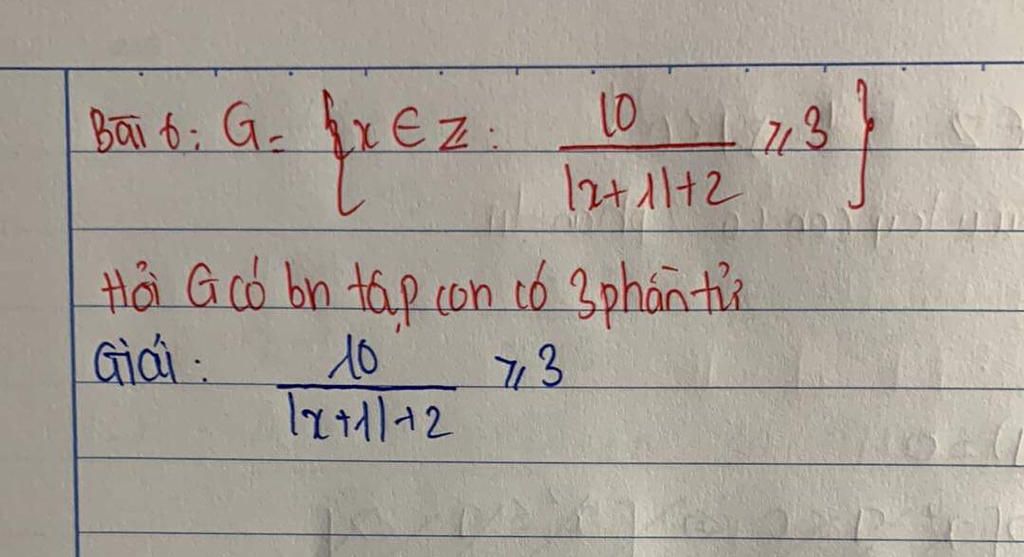 Bài 6: G = {x ∈ Z : 10 / (|x+1|+2) ⩾ 3}
Hỏi G có bn tập con có 3 phần tử
Giải : 10 / (|x+1|+2) ⩾ 3